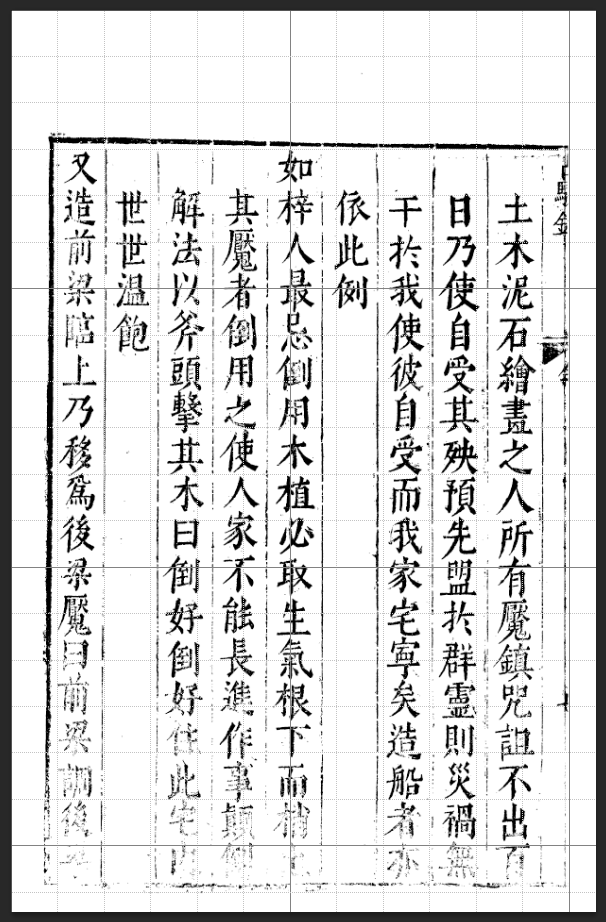 土木泥石繪畫之人所有魘鎮咒詛不出百
日乃使自受其殃預先盟於群靈則災禍無
干於我使彼自受而我家宅寧矣造船者亦
依此例
如梓人最忌倒用木植必取生氣根下而梢上
其魘者倒用之使人家不能長進作事顛倒
解法以斧頭擊其木曰倒好倒好住此宅內
世世温飽
又造前梁臨上乃移爲後梁魘曰前梁調後梁